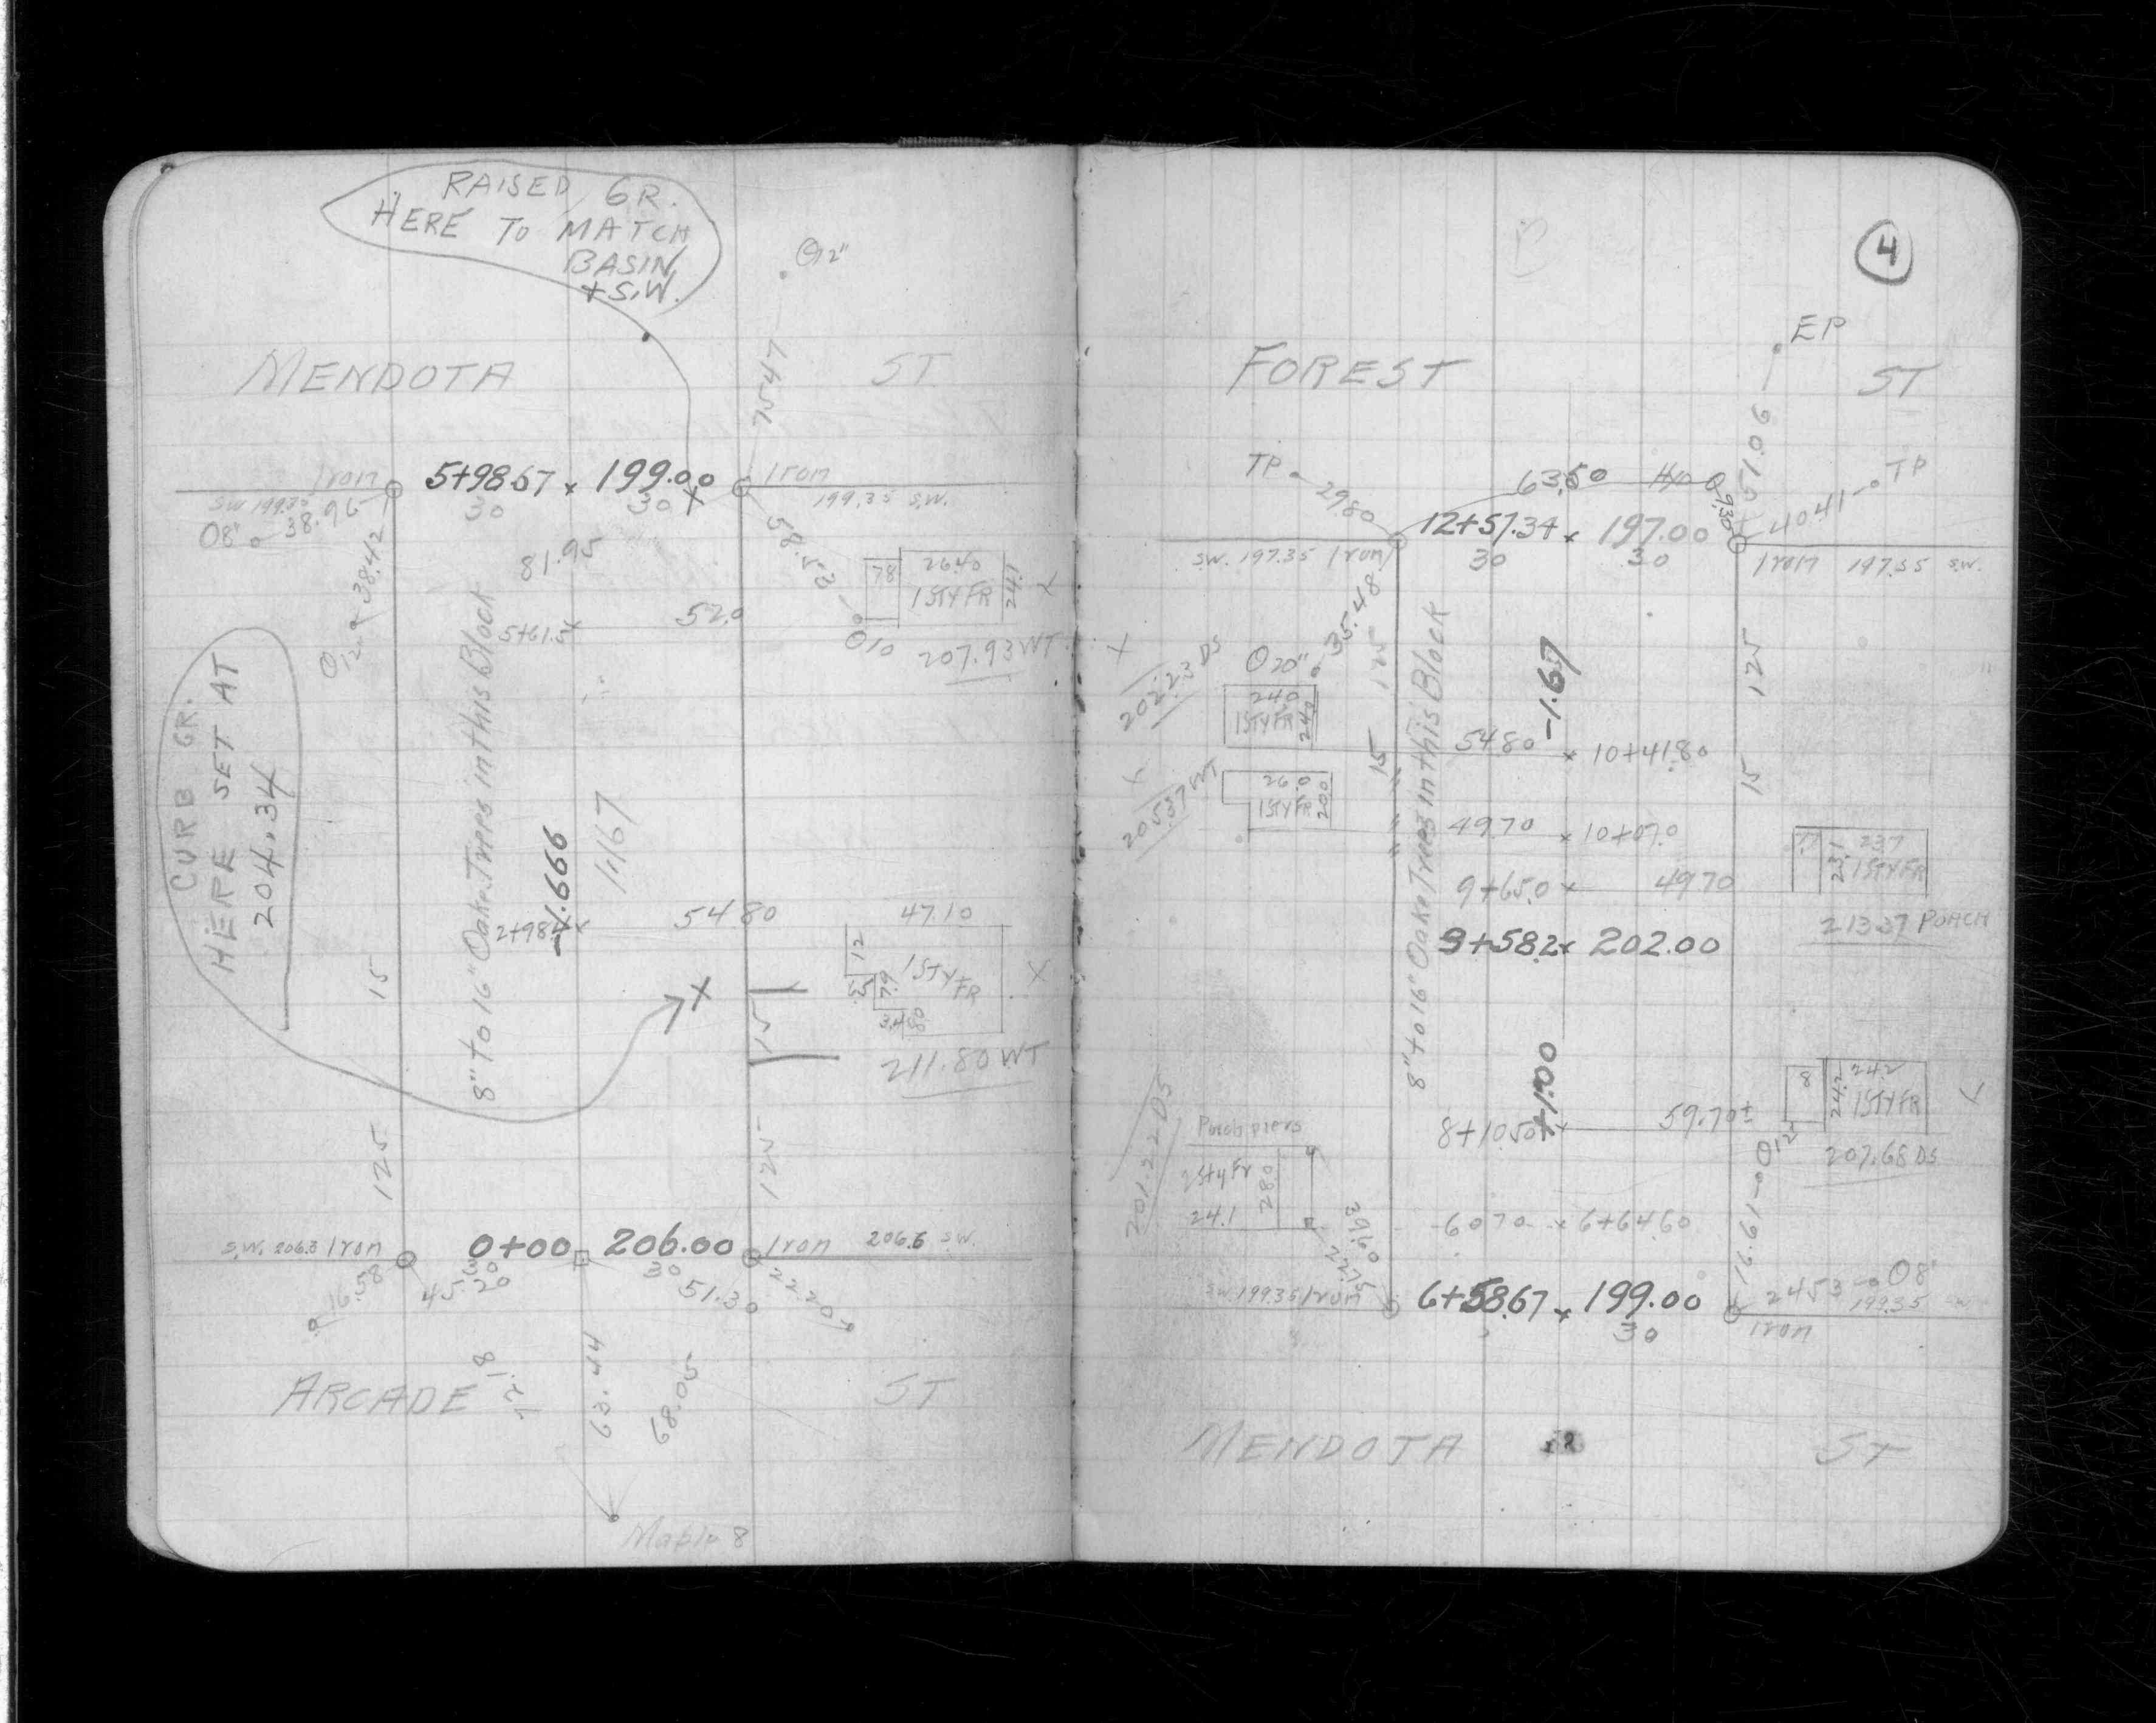 RAISED GR.
HERE TO MATCH
BASIN
+ S.W.
O12"
MENDOTA ST
75.47
Iron 5+98.67 x 199.00 Iron
30 30 X
199.35 S.W.
O8" 38.96
38.42
O12"
58.52
O10
81.95
7.8 26.40
1 STY FR 24.1 X
207.93 WT
52.0
8" to 16" Oake Trees in this Block
CURB GR.
HERE SET AT
204.34
-1.666
54.80
47.10
12
7.9
1 STY FR
X
211.80 WT
15
15
X
125
125
S.W. 206.3 Iron 0+00 206.00 Iron 206.6 S.W.
20
30
16.58
51.30
22.20
ARCADE ST
63.44
68.05
Maple 8
4
EP
FOREST ST
51.06
TP
29.80
63.50
9.30
40.41
TP
12+57.34 x 197.00
30 30
S.W. 197.35 Iron
Iron S.W.
35.48
O20"
125
125
202.23 DS
24.0
1 STY FR 24.0
-1.67
54.80 x 10+41.80
15
15
205.37 WT
26.0
1 STY FR 20.0
49.70 x 10+07.0
9+65.0 x 49.70
23.7
23.1 1 STY FR
213.37 PORCH
9+58.2 x 202.00
8" to 16" Oake Trees in this Block
+1.00
8+10.50 x 59.70±
8
24.2
24.2 1 STY FR
207.68 DS
O12"
Porch piers
2 Sty Fr 28.0
24.1
201.22 DS
60.70 x 6+64.60
16.61
S.W. 199.35 Iron 6+58.67 x 199.00
30
24.53 O8"
199.35 S.W.
Iron
MENDOTA ST